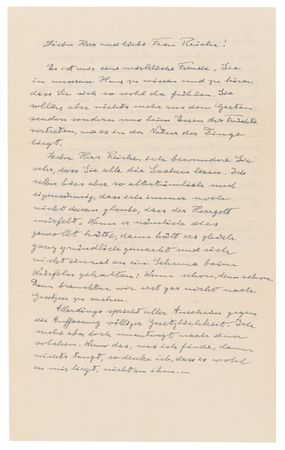 Lieber Herr und liebe Frau Reiche!
Es ist mir eine wirkliche Freude, Sie
in unserem Haus zu wissen und zu hören,
dass Sie sich so wohl da fühlen. Sie
sollen aber nichts mehr aus dem Garten
senden sondern uns beim Essen der Früchte
vertreten, wie es in der Natur der Dinge
liegt.
Lieber Herr Reiche, ich bewundere Sie
sehr, dass Sie alle die Sachen lesen. Ich
selber bin aber so altertümlich und
eigensinnig, dass ich immer noch
nicht daran glaube, dass der Herrgott
würfelt. Wenn er nämlich dies
gewollt hätte, dann hätt ers gleich
ganz gründlich gemacht und sich
nicht einmal an ein Schema beim
Würfeln gehalten: Wenn schon, denn schon.
Dann brauchten wir erst gar nicht nach
Gesetzen zu suchen.
Allerdings spricht aller Anschein gegen
die Auffassung völliger Gesetzlichkeit. Ich
suche aber doch unentwegt nach einer
solchen. Wenn das, was ich finde, dann
nichts taugt, so denke ich, dass es wohl
an mir liegt, nicht an ihm. —